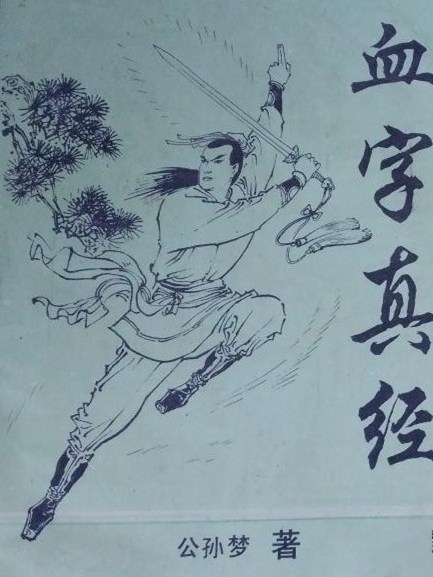 血字真经
公孙梦 著